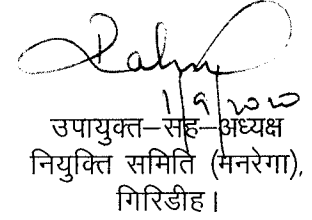 1/9/2020
उपायुक्त–सह–अध्यक्ष
नियुक्ति समिति (मनरेगा),
गिरिडीह।